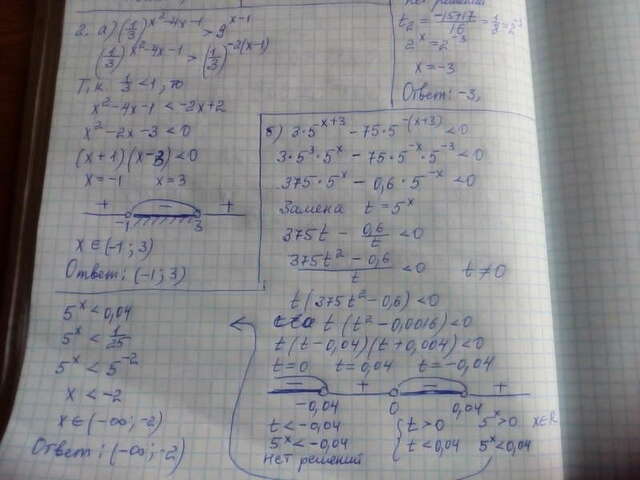 2. а) (1/3)^(x²-4x-1) > 9^(x-1)
(1/3)^(x²-4x-1) > (1/3)^(-2(x-1))
Т,к 1/3 < 1, то
x²-4x-1 < -2x+2
x²-2x-3 < 0
(x+1)(x-3) < 0
x=-1 x=3
+ - +
-1 3
x ∈ (-1; 3)
Ответ: (-1; 3)
t₂ = (-15+17)/16 = 1/8 = 2^(-3)
2^x = 2^(-3)
x = -3
Ответ: -3,
б) 3·5^(x+3) - 75·5^(-(x+3)) < 0
3·5³·5^x - 75·5^(-x)·5^(-3) < 0
375·5^x - 0,6·5^(-x) < 0
Замена t = 5^x
375t - 0,6/t < 0
(375t² - 0,6)/t < 0 t ≠ 0
t(375t² - 0,6) < 0
t(t² - 0,0016) < 0
t(t-0,04)(t+0,004) < 0
t=0 t=0,04 t=-0,04
- + - +
-0,04 0 0,04
t < -0,04 { t > 0 5^x > 0 x∈R
5^x < -0,04 t < 0,04 5^x < 0,04
Нет решений
5^x < 0,04
5^x < 1/25
5^x < 5^(-2)
x < -2
x ∈ (-∞; -2)
Ответ: (-∞; -2)